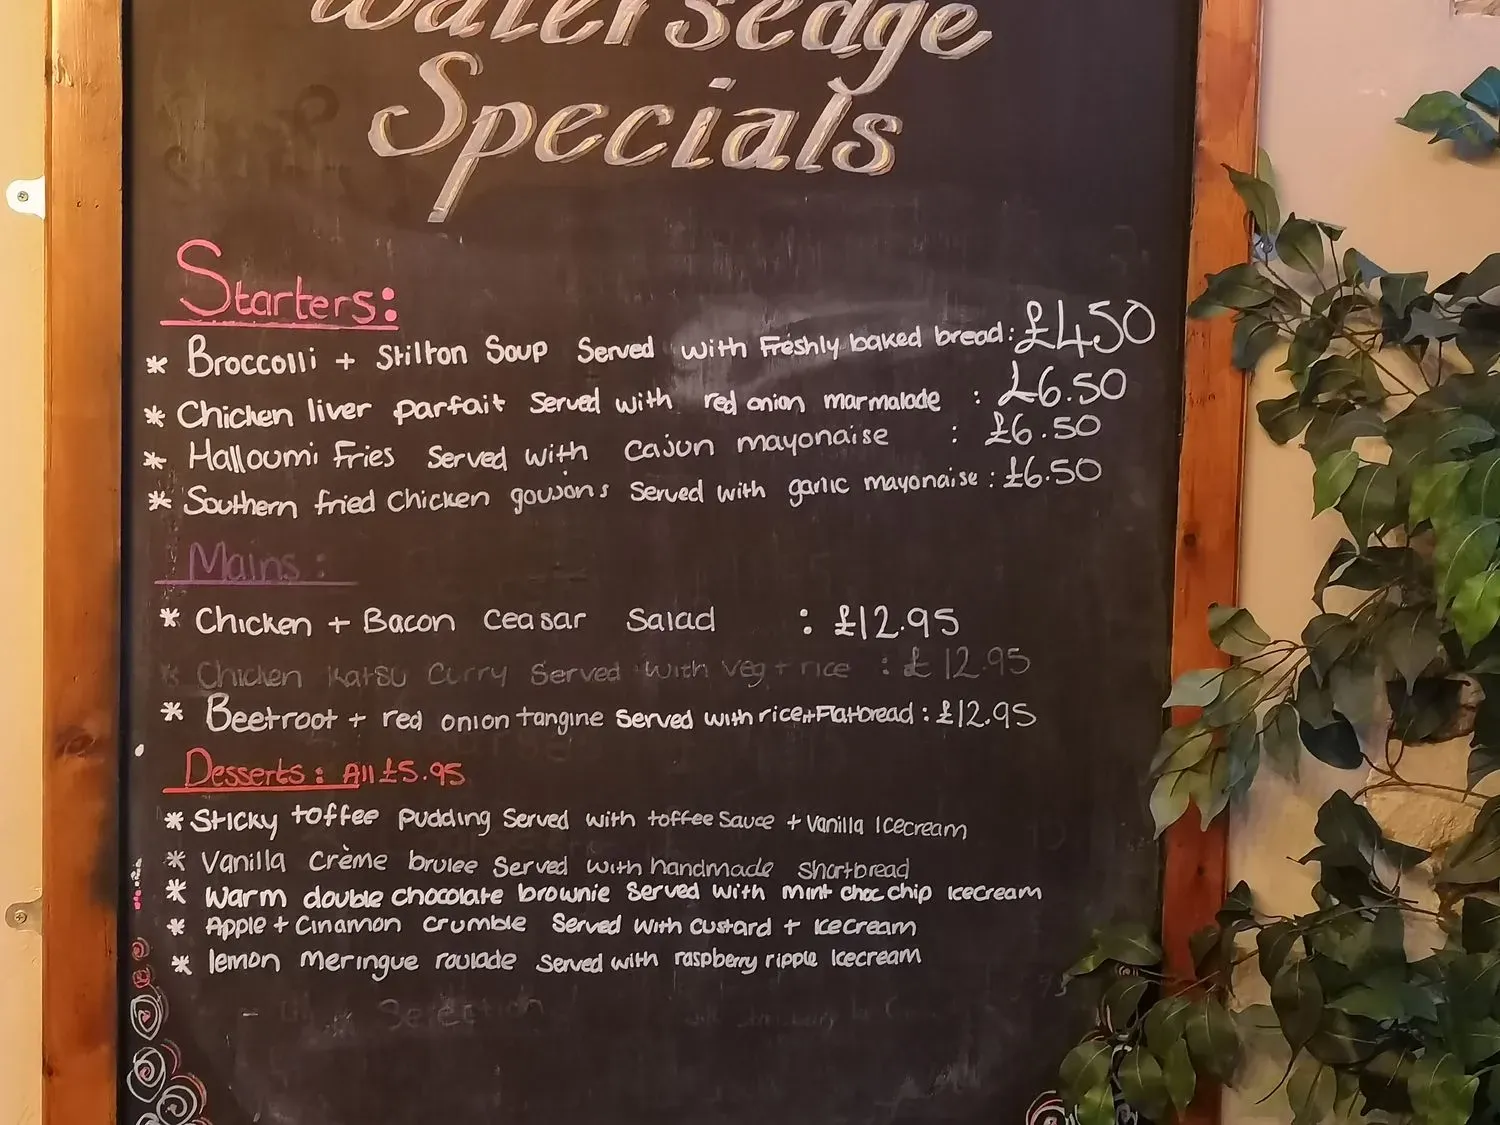 Watersedge
Specials
Starters:
* Broccolli + Stilton Soup Served with Freshly baked bread: £4.50
* Chicken liver parfait Served with red onion marmalade : £6.50
* Halloumi Fries Served with Cajun mayonaise : £6.50
* Southern fried Chicken goujons Served with garlic mayonaise : £6.50
Mains :
* Chicken + Bacon Ceasar Salad : £12.95
* Chicken Katsu Curry Served with veg + rice : £12.95
* Beetroot + red onion tangine Served with rice + Flatbread : £12.95
Desserts : All £5.95
* Sticky toffee pudding Served with toffee Sauce + Vanilla Icecream
* Vanilla Crème brulee Served with handmade Shortbread
* Warm double chocolate brownie Served with mint choc chip Icecream
* Apple + Cinamon Crumble Served with custard + Icecream
* lemon meringue roulade Served with raspberry ripple Icecream
Selection